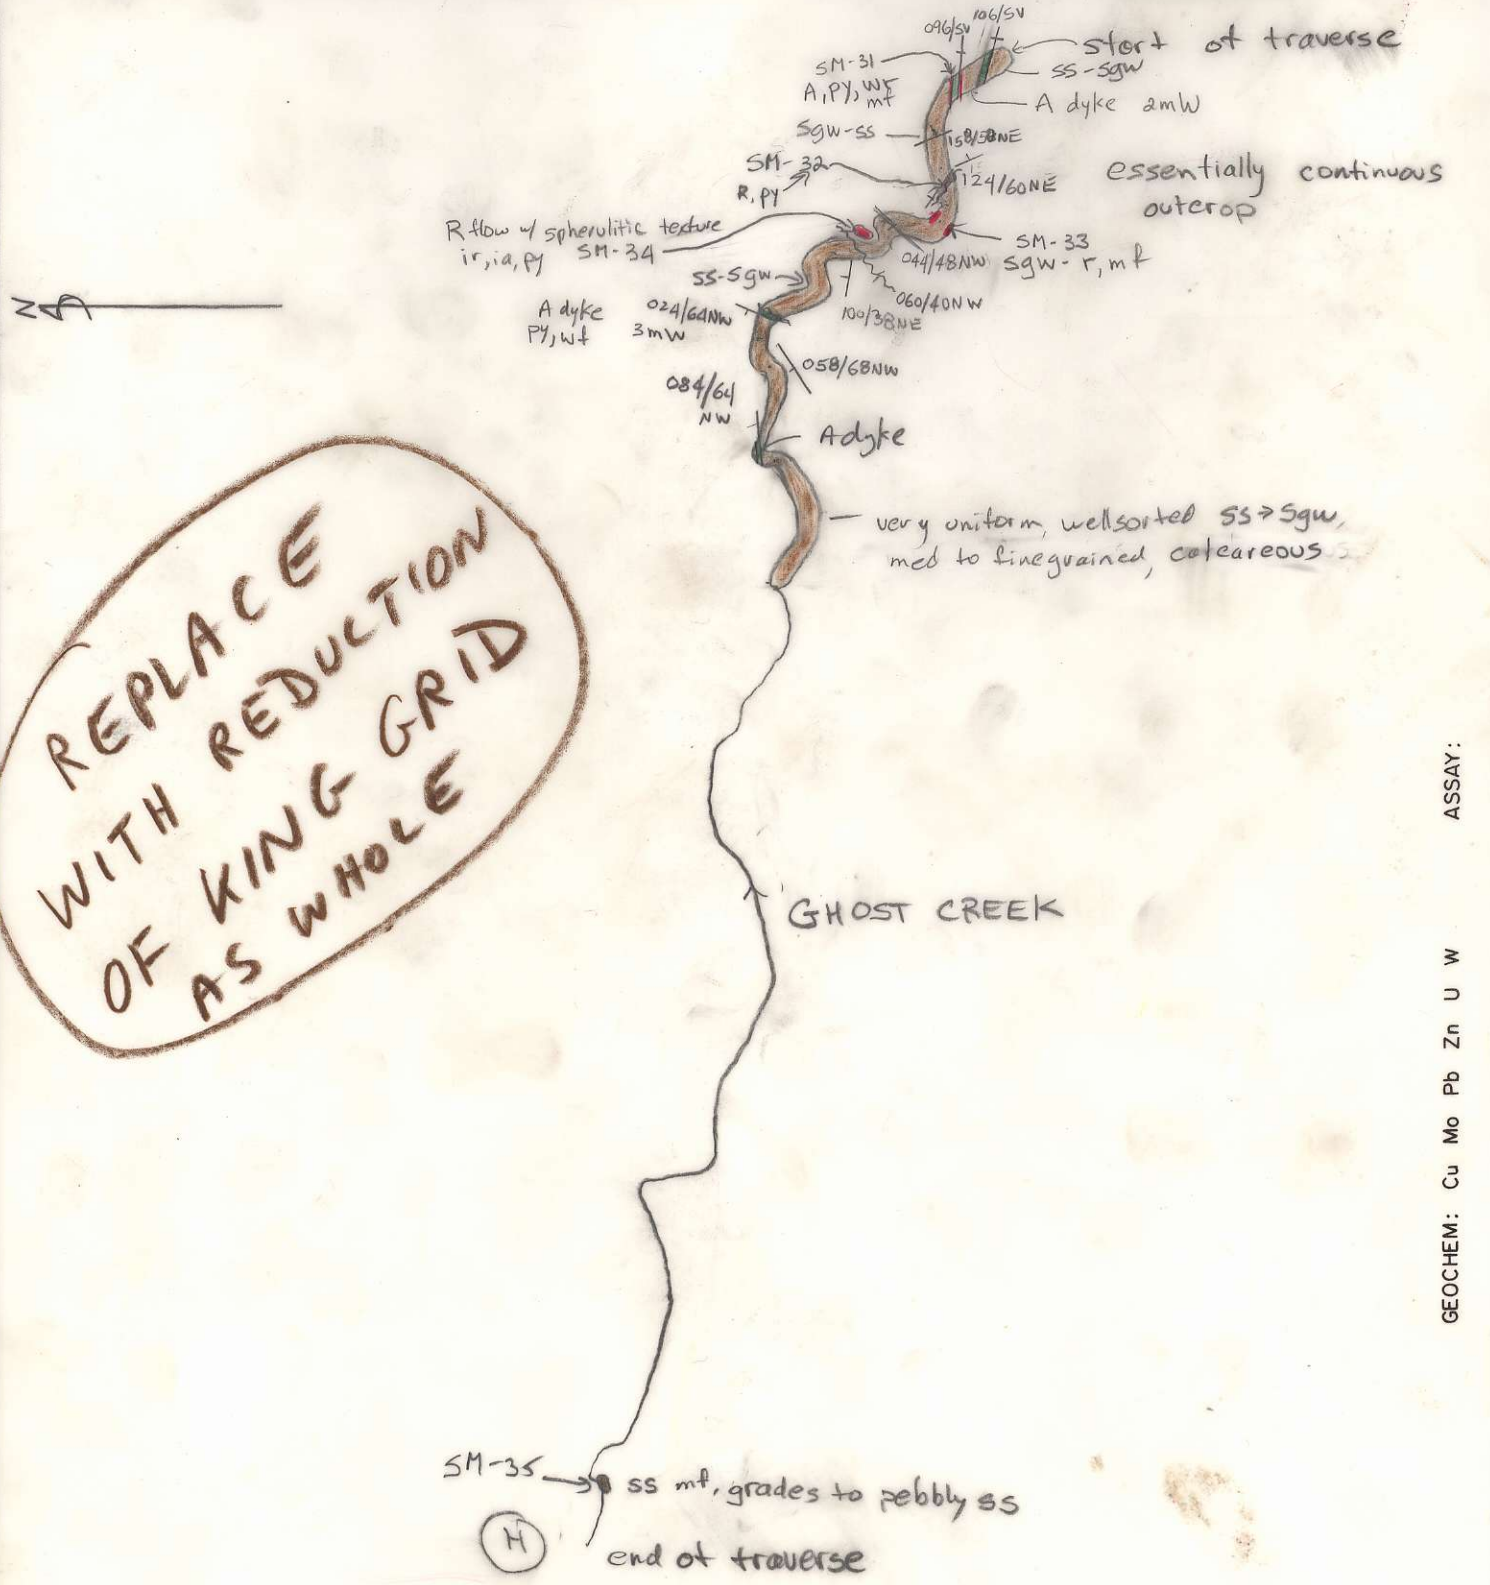 096/SV
106/SV
start of traverse
SM-31
A, PY, wf
mf
ss-sgw
A dyke 2mW
Sgw-ss
158/58NE
SM-32
R, py
124/60NE
essentially continuous
outcrop
R flow w/ spherulitic texture
ir, ia, py SM-34
SM-33
sgw-r, mf
044/48NW
ss-sgw
060/40NW
100/38NE
A dyke
PY, wf
024/64NW
3mW
058/68NW
084/64
NW
A dyke
very uniform, wellsorted ss→sgw,
med to finegrained, calcareous
N
REPLACE
WITH REDUCTION
OF KING GRID
AS WHOLE
GHOST CREEK
GEOCHEM: Cu Mo Pb Zn U W ASSAY:
SM-35
ss mf, grades to pebbly ss
H
end of traverse